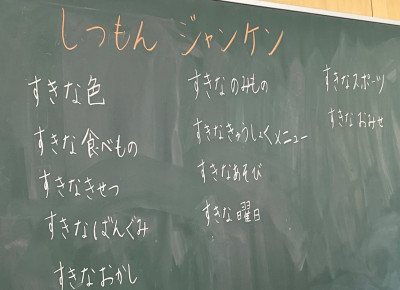 しつもん ジャンケン
すきな色
すきな食べもの
すきなきせつ
すきなばんぐみ
すきなおかし
すきなのみもの
すきなきゅうしょくメニュー
すきなあそび
すきな曜日
すきなスポーツ
すきなおみせ